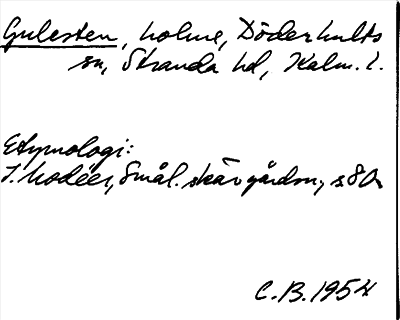 Gulesten, holme, Döderhults
sn, Stranda hd, Kalm. l.
Etymologi:
I. Modéer, Smål. skärgårdsn., s 80
C.B. 1954